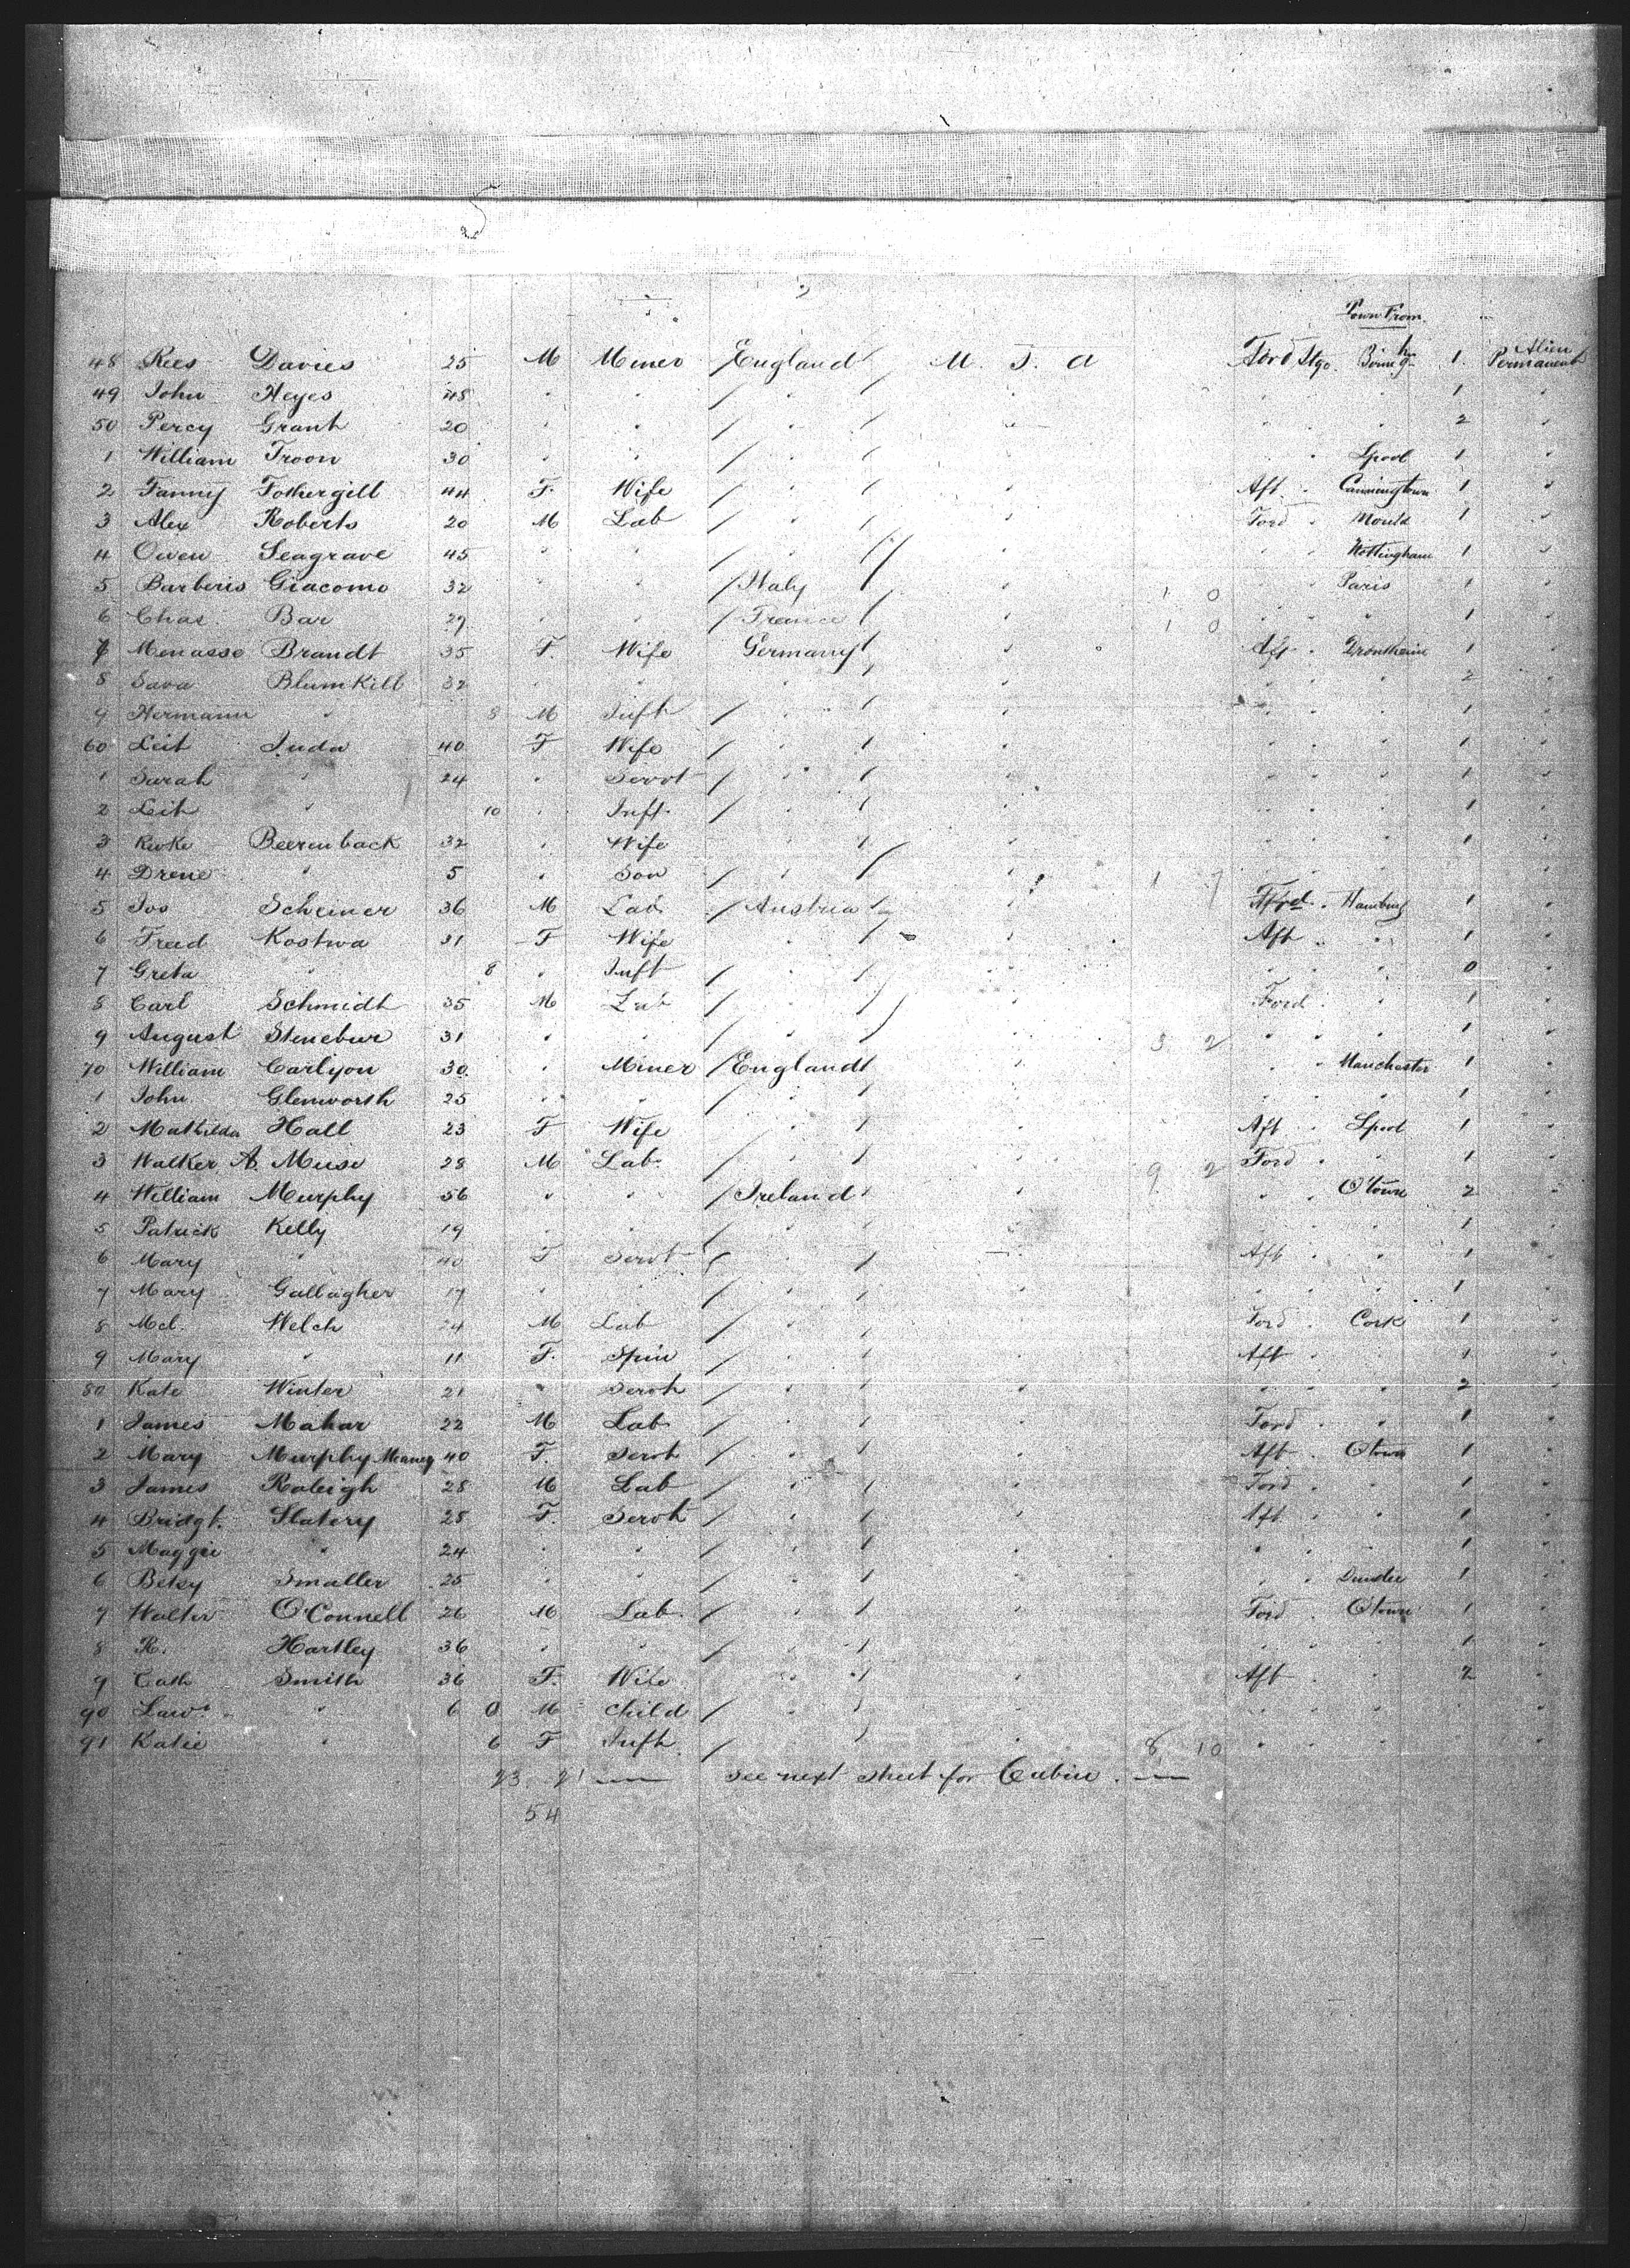 Town From
48 Rees Davies 25 M Miner England U. S. A Ford Stge. Birmghm 1 Alien Permanent
49 John Heyes 48 " " / " / " " " " 1 "
50 Percy Grant 20 " " / " / " " " " 2 "
1 William Troon 30 " " / " / " " " Lpool 1 "
2 Fanny Fothergill 44 F. Wife / " / " Aft. " Canningtown 1 "
3 Alex Roberts 20 M Lab / " / " Ford " Mould 1 "
4 Owen Seagrave 45 " " / " / " " " Nottingham 1 "
5 Barberis Giacomo 32 " " / Italy / " 1 0 " " Paris 1 "
6 Chas. Bar 29 " " / France / " 1 0 " " " 1 "
7 Menasse Brandt 35 F. Wife Germany / " Aft " Drontheim 1 "
8 Sara Blumkill 32 " " " / " " " " 2 "
9 Hermann " 8 M Inft / " / " " " " 1 "
60 Leit Juda 40 F Wife / " / " " " " 1 "
1 Sarah " 24 " Servt / " / " " " " 1 "
2 Leih " 10 " Inft. / " / " " " " 1 "
3 Rivke Beerenback 32 " Wife / " / " " " " 1 "
4 Drene " 5 " Son / " / " 1 7 " " " "
5 Jos Scheiner 36 M Lab / Austria / " Ford. " Hamburg 1 "
6 Freed Kostwa 31 F Wife " / " Aft " " 1 "
7 Greta " 8 " Inft / " / " " " " 0 "
8 Carl Schmidt 35 M Lab / " / " Ford " " 1 "
9 August Stenebur 31 " " / " / " 3 2 " " " 1 "
70 William Carlyon 30 " Miner / England / " " " Manchester 1 "
1 John Glenworth 25 " " / " / " " " " 1 "
2 Mathilda Hall 23 F Wife / " / " Aft " Lpool 1 "
3 Walker A. Muse 28 M Lab. / " / " 9 2 Ford " " 1 "
4 William Murphy 56 " " / Ireland / " " " Qtown 2 "
5 Patrick Kelly 19 " " / " / " " " " 1 "
6 Mary " 40 F Servt / " / " Aft " " 1 "
7 Mary Gallagher 17 " " / " / " " " " 1 "
8 Mcl. Welch 24 M Lab / " / " Ford " Cork 1 "
9 Mary " 11 F. Spin / " / " Aft " " 1 "
80 Kate Winter 21 " Servt / " / " " " " 2 "
1 James Mahar 22 M Lab / " / " Ford " " 1 "
2 Mary Murphy Meaney 40 F. Servt / " / " Aft " Qtown 1 "
3 James Raleigh 28 M Lab / " / " Ford " " 1 "
4 Bridgt. Slatery 25 F. Servt / " / " Aft " " 1 "
5 Maggie " 24 " " / " / " " " " 1 "
6 Betsy Smaller 25 " " / " / " " " Dundee 1 "
7 Walter O'Connell 26 M Lab. / " / " Ford " Qtown 1 "
8 R. Hartley 36 " " / " / " " " " 1 "
9 Cath Smith 36 F. Wife " / " Aft " " 2 "
90 Lawe. " 6 0 M Child / " " " " " "
91 Katie " 6 F Inft. / " / " 8 10 " " " "
23 21 — see next sheet for Cabin. —
54